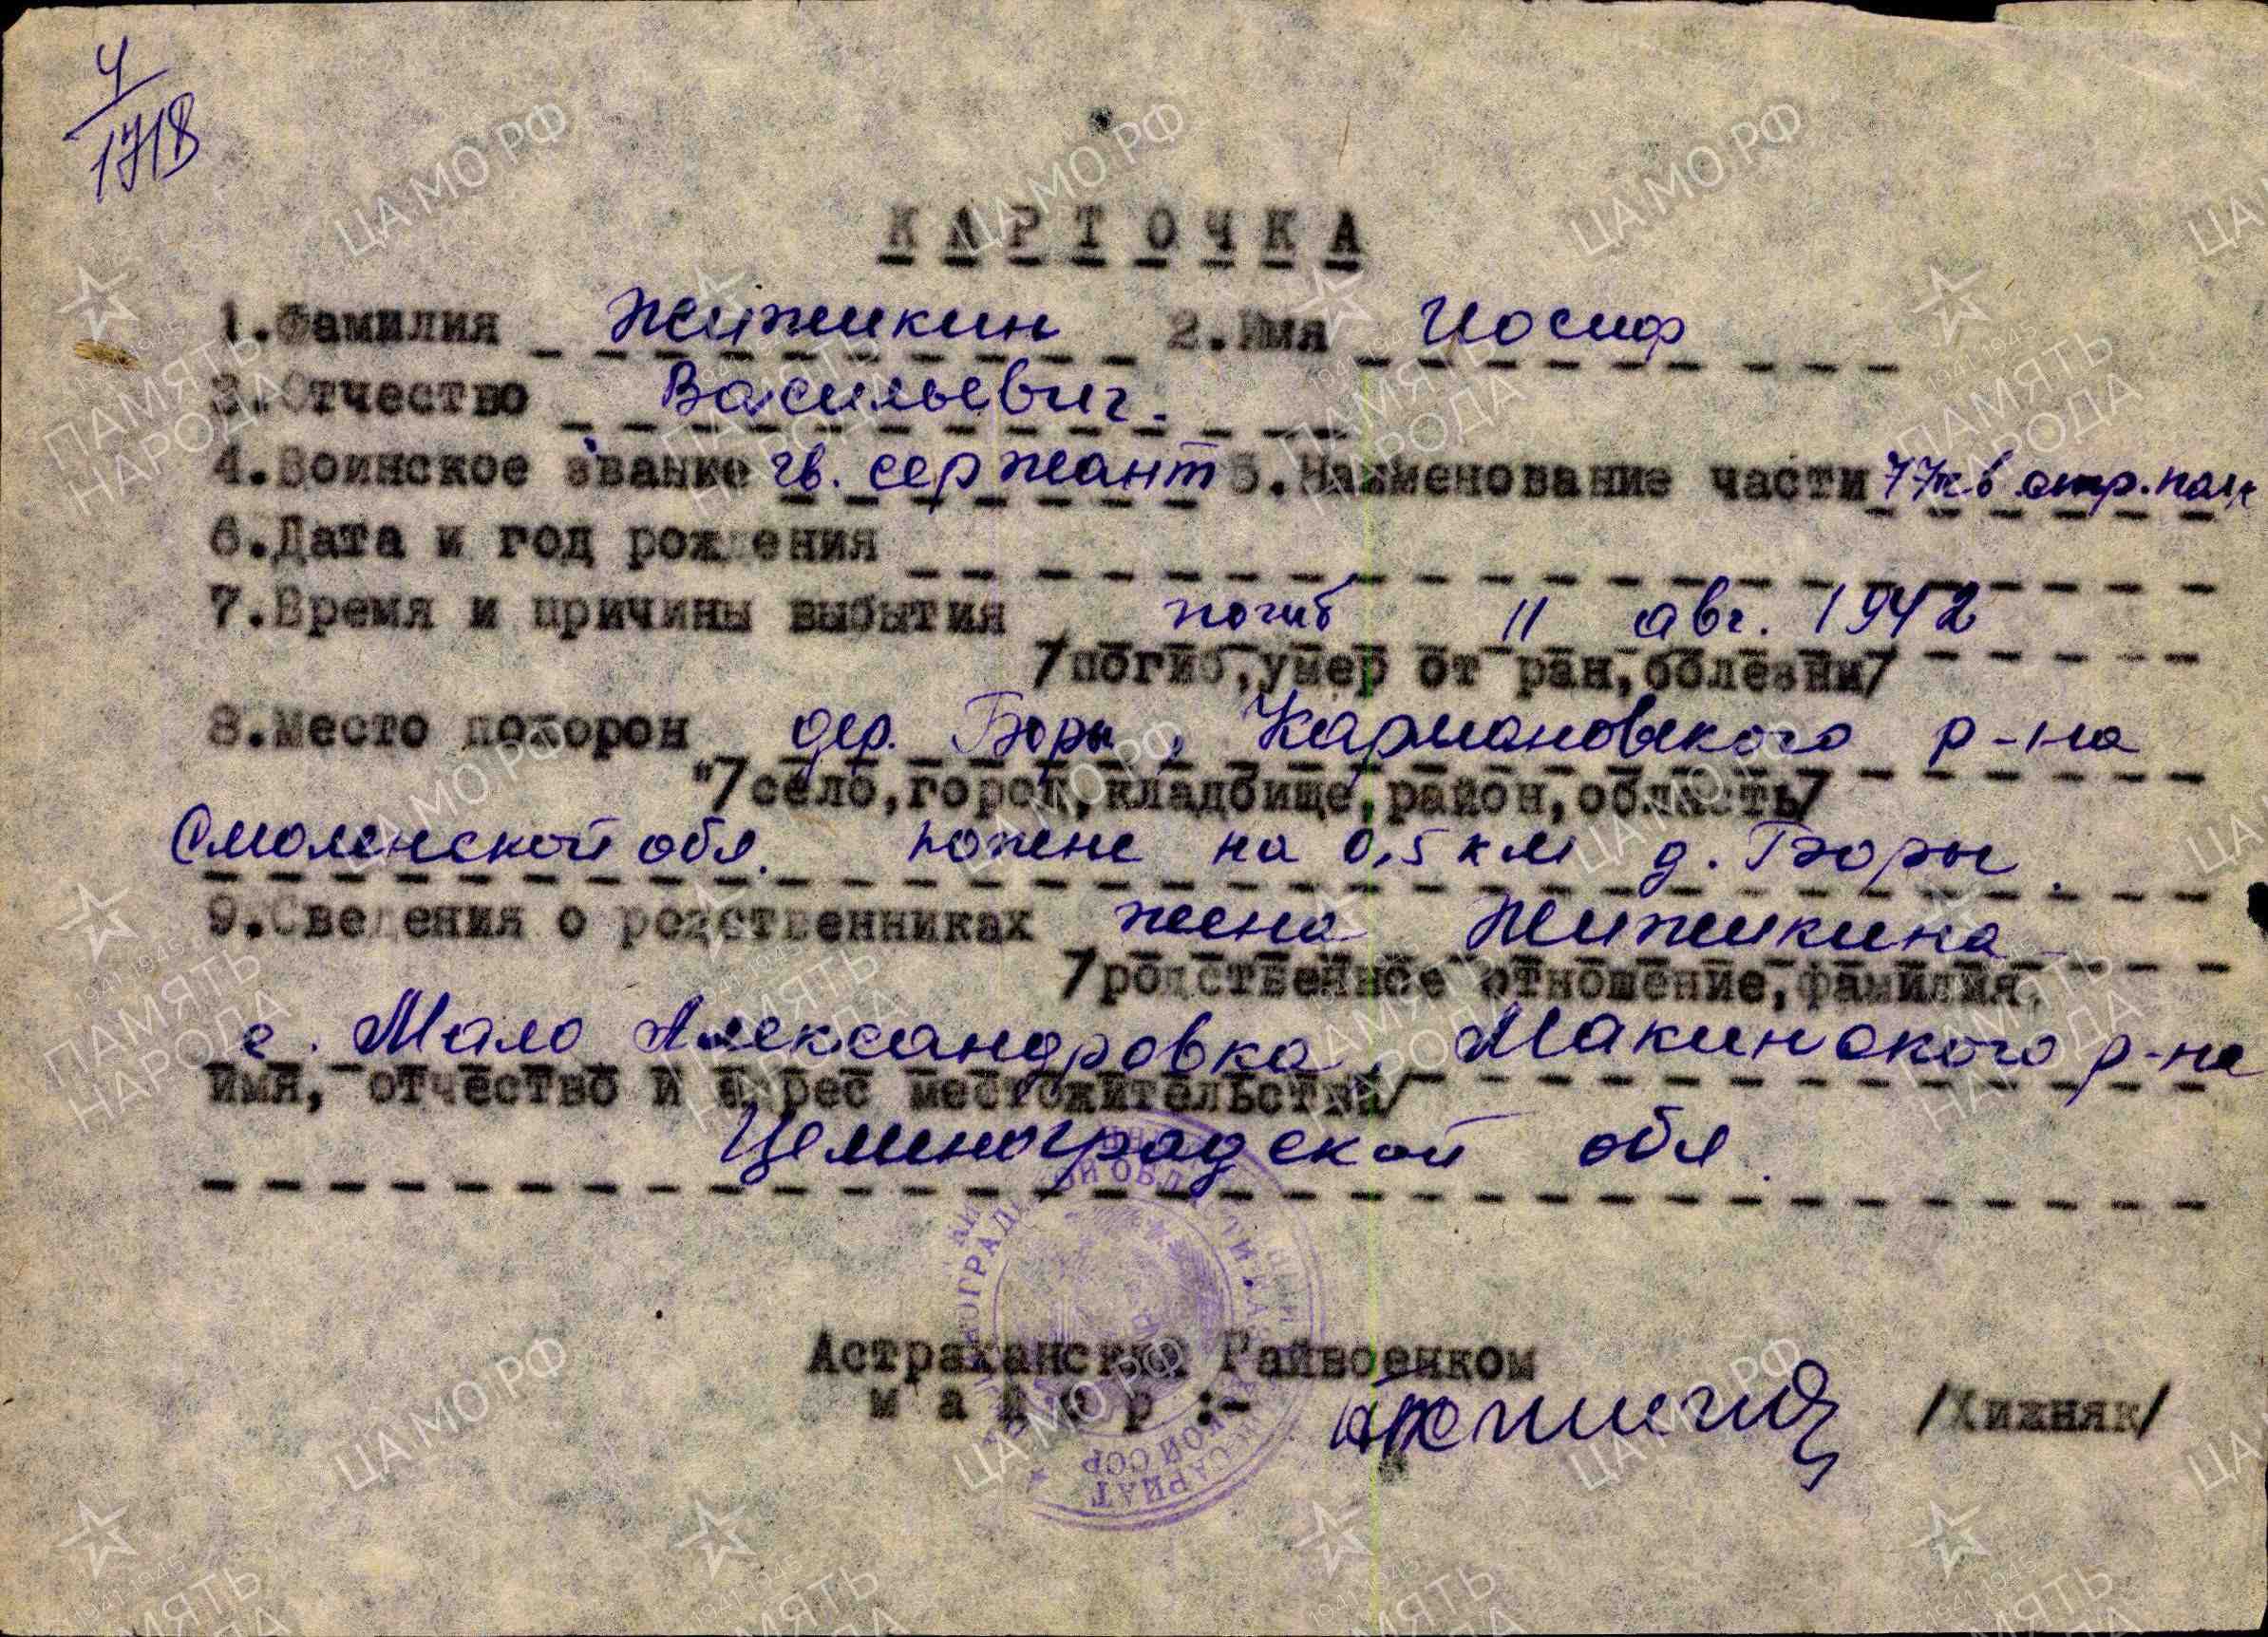 4/1718
КАРТОЧКА
1.Фамилия Жижикин 2.Имя Иосиф
3.Отчество Васильевич.
4.Воинское звание гв. сержант 5.Наименование части 77 гв. стр. полк
6.Дата и год рождения
7.Время и причины выбытия погиб 11 авг. 1942
/погиб,умер от ран,болезни/
8.Место похорон дер. Боры, Кармановского р-на
"/село,город,кладбище,район,область/
Смоленской обл. южнее на 0,5 км д. Боры.
9.Сведения о родственниках жена Жижикина
/родственное отношение,фамилия,
с. Мало Александровка, Макинского р-на
имя, отчество и адрес местожительства/
Целиноградской обл.
Астраханский Райвоенком
майор :- /Хижняк/
ЦА МО РФ
1941-1945
ПАМЯТЬ
НАРОДА